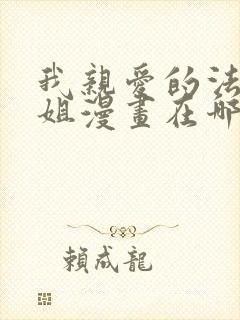 我親愛的法
姐漫畫在哪
賴成龍